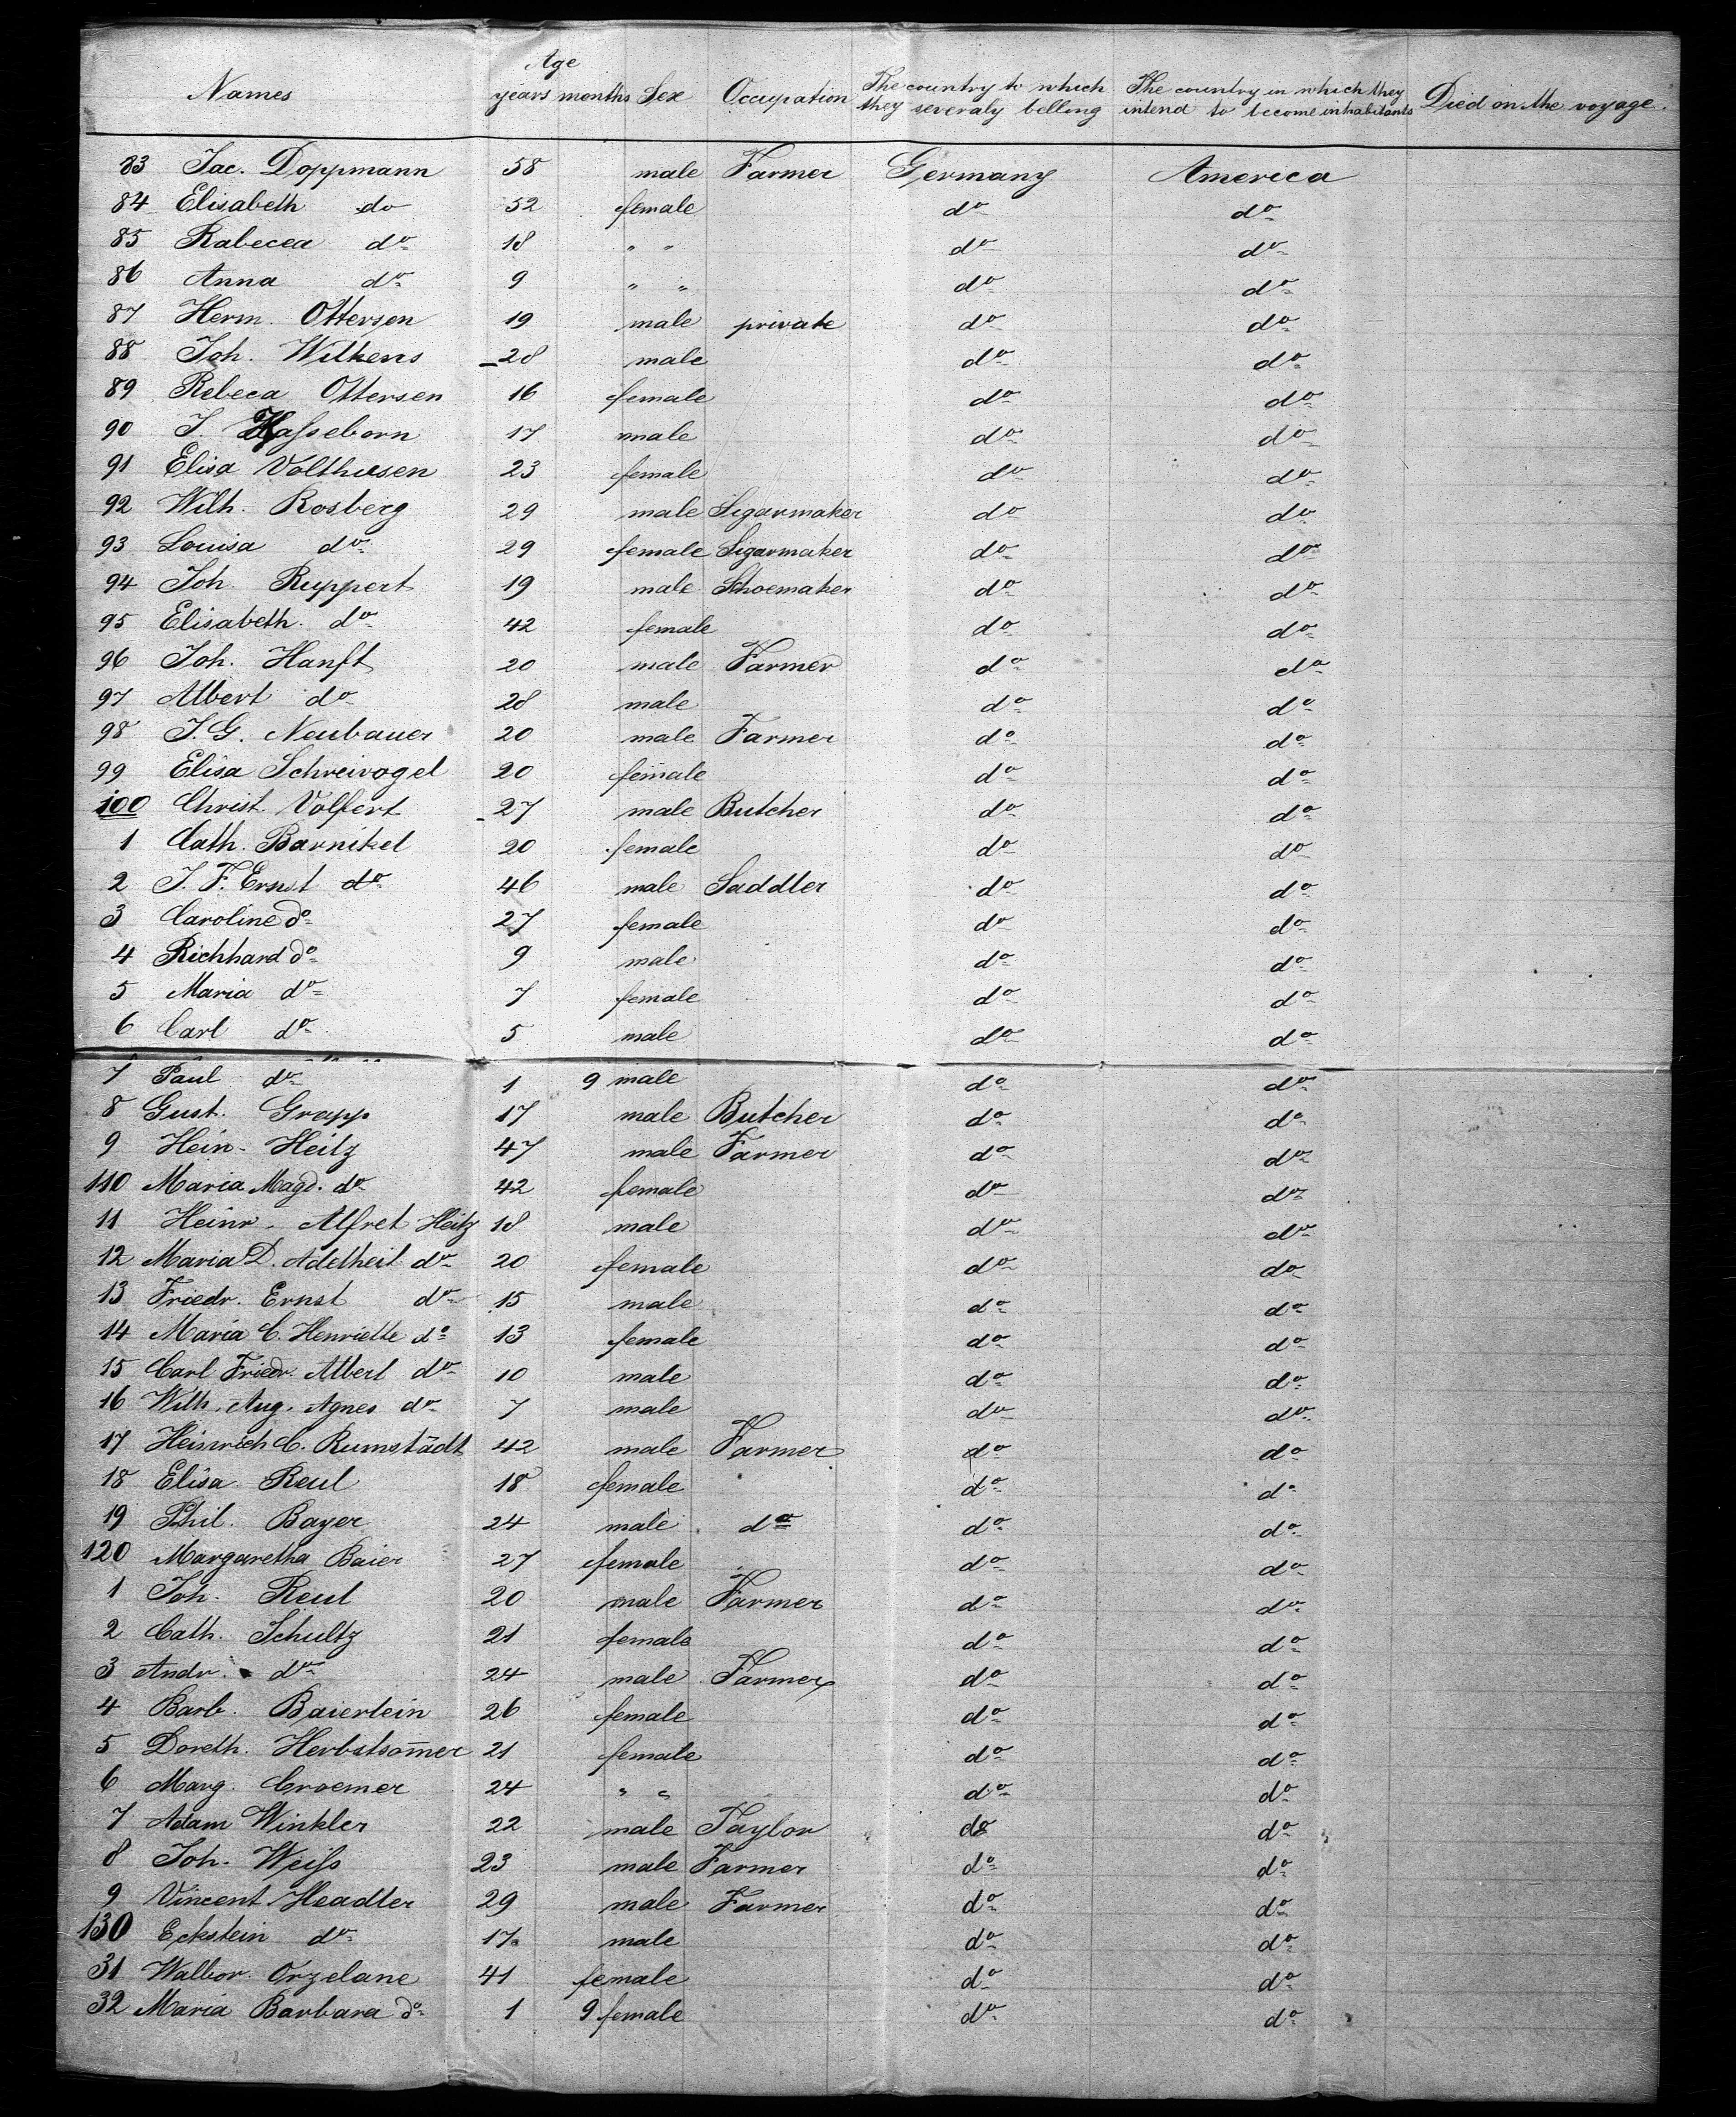 Names Age years months Sex Occupation The country to which they severaly bellong The country in which they intend to become inhabitants Died on the voyage.
83 Jac. Doppmann 58 male Farmer Germany America
84 Elisabeth do 52 female do do
85 Rabecea do 18 " " do do
86 Anna do 9 " " do do
87 Herm. Ottersen 19 male private do do
88 Joh. Wilkens 28 male do do
89 Rebeca Ottersen 16 female do do
90 J. Hasseborn 17 male do do
91 Elisa Volthusen 23 female do do
92 Wilh. Rosberg 29 male Sigarmaker do do
93 Louisa do 29 female Sigarmaker do do
94 Joh. Ruppert 19 male Schoemaker do do
95 Elisabeth. do 42 female do do
96 Joh. Hanft 20 male Farmer do do
97 Albert do 28 male do do
98 J. G. Neubauer 20 male Farmer do do
99 Elisa Schreivogel 20 female do do
100 Christ. Volkert 27 male Butcher do do
1 Cath. Barnikel 20 female do do
2 J. F. Ernst do 46 male Saddler do do
3 Caroline do 27 female do do
4 Richhard do 9 male do do
5 Maria do 7 female do do
6 Carl do 5 male do do
7 Paul do 1 9 male do do
8 Gust. Grapp 17 male Butcher do do
9 Hein. Heitz 47 male Farmer do do
110 Maria Magd. do 42 female do do
11 Heinr. Alfret Heitz 18 male do do
12 Maria D. Adelheit do 20 female do do
13 Friedr. Ernst do 15 male do do
14 Maria C. Henriette do 13 female do do
15 Carl Friedr. Albert do 10 male do do
16 Wilh. Aug. Agnes do 7 male do do
17 Heinrich C. Rumstädt 42 male Farmer do do
18 Elisa Reul 18 female do do
19 Phil. Bayer 24 male do do do
120 Margaretha Baier 27 female do do
1 Joh. Reul 20 male Farmer do do
2 Cath. Schultz 21 female do do
3 Andr. do 24 male Farmer do do
4 Barb. Baierlein 26 female do do
5 Doreth. Herbstsom̄er 21 female do do
6 Marg. Croemer 24 " " do do
7 Adam Winkler 22 male Taylor do do
8 Joh. Weiss 23 male Farmer do do
9 Vincent Headler 29 male Farmer do do
130 Eckstein do 17 male do do
31 Walbor. Orzelane 41 female do do
32 Maria Barbara do 1 9 female do do